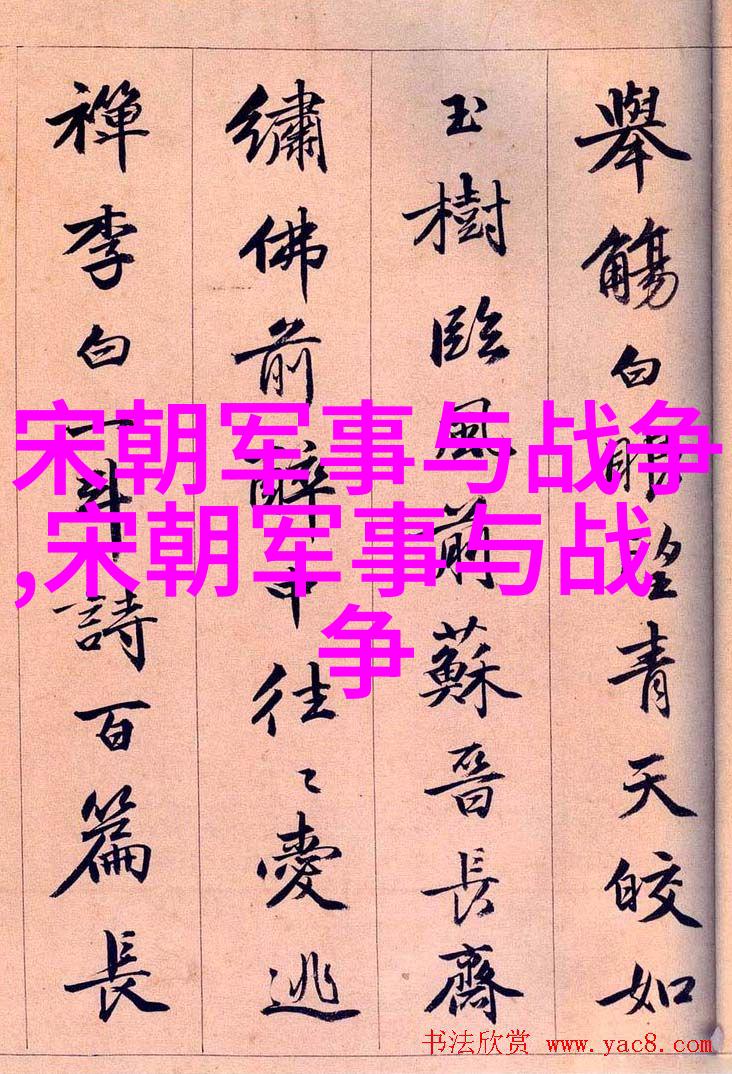 舉觴白眼望青天皎如
玉樹臨風前蘇晉長齋
繡佛前醉中往〻愛逃
禪李白一斗詩百篇長
宋朝军事与战争
,宋朝军事与战
争
书法欣赏 www.yac8.com